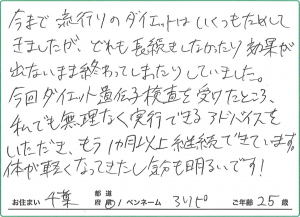 今まで流行りのダイエットはいくつもためして
きましたが、どれも長続きしなかったり効果が
出ないまま終わってしまったりしていました。
今回ダイエット遺伝子検査を受けたところ、
私でも無理なく実行できるアドバイスを
いただき、もう1か月以上継続できています。
体が軽くなってきたし気分も明るいです!
お住まい 千葉 都道府県 ペンネーム ご年齢 25歳